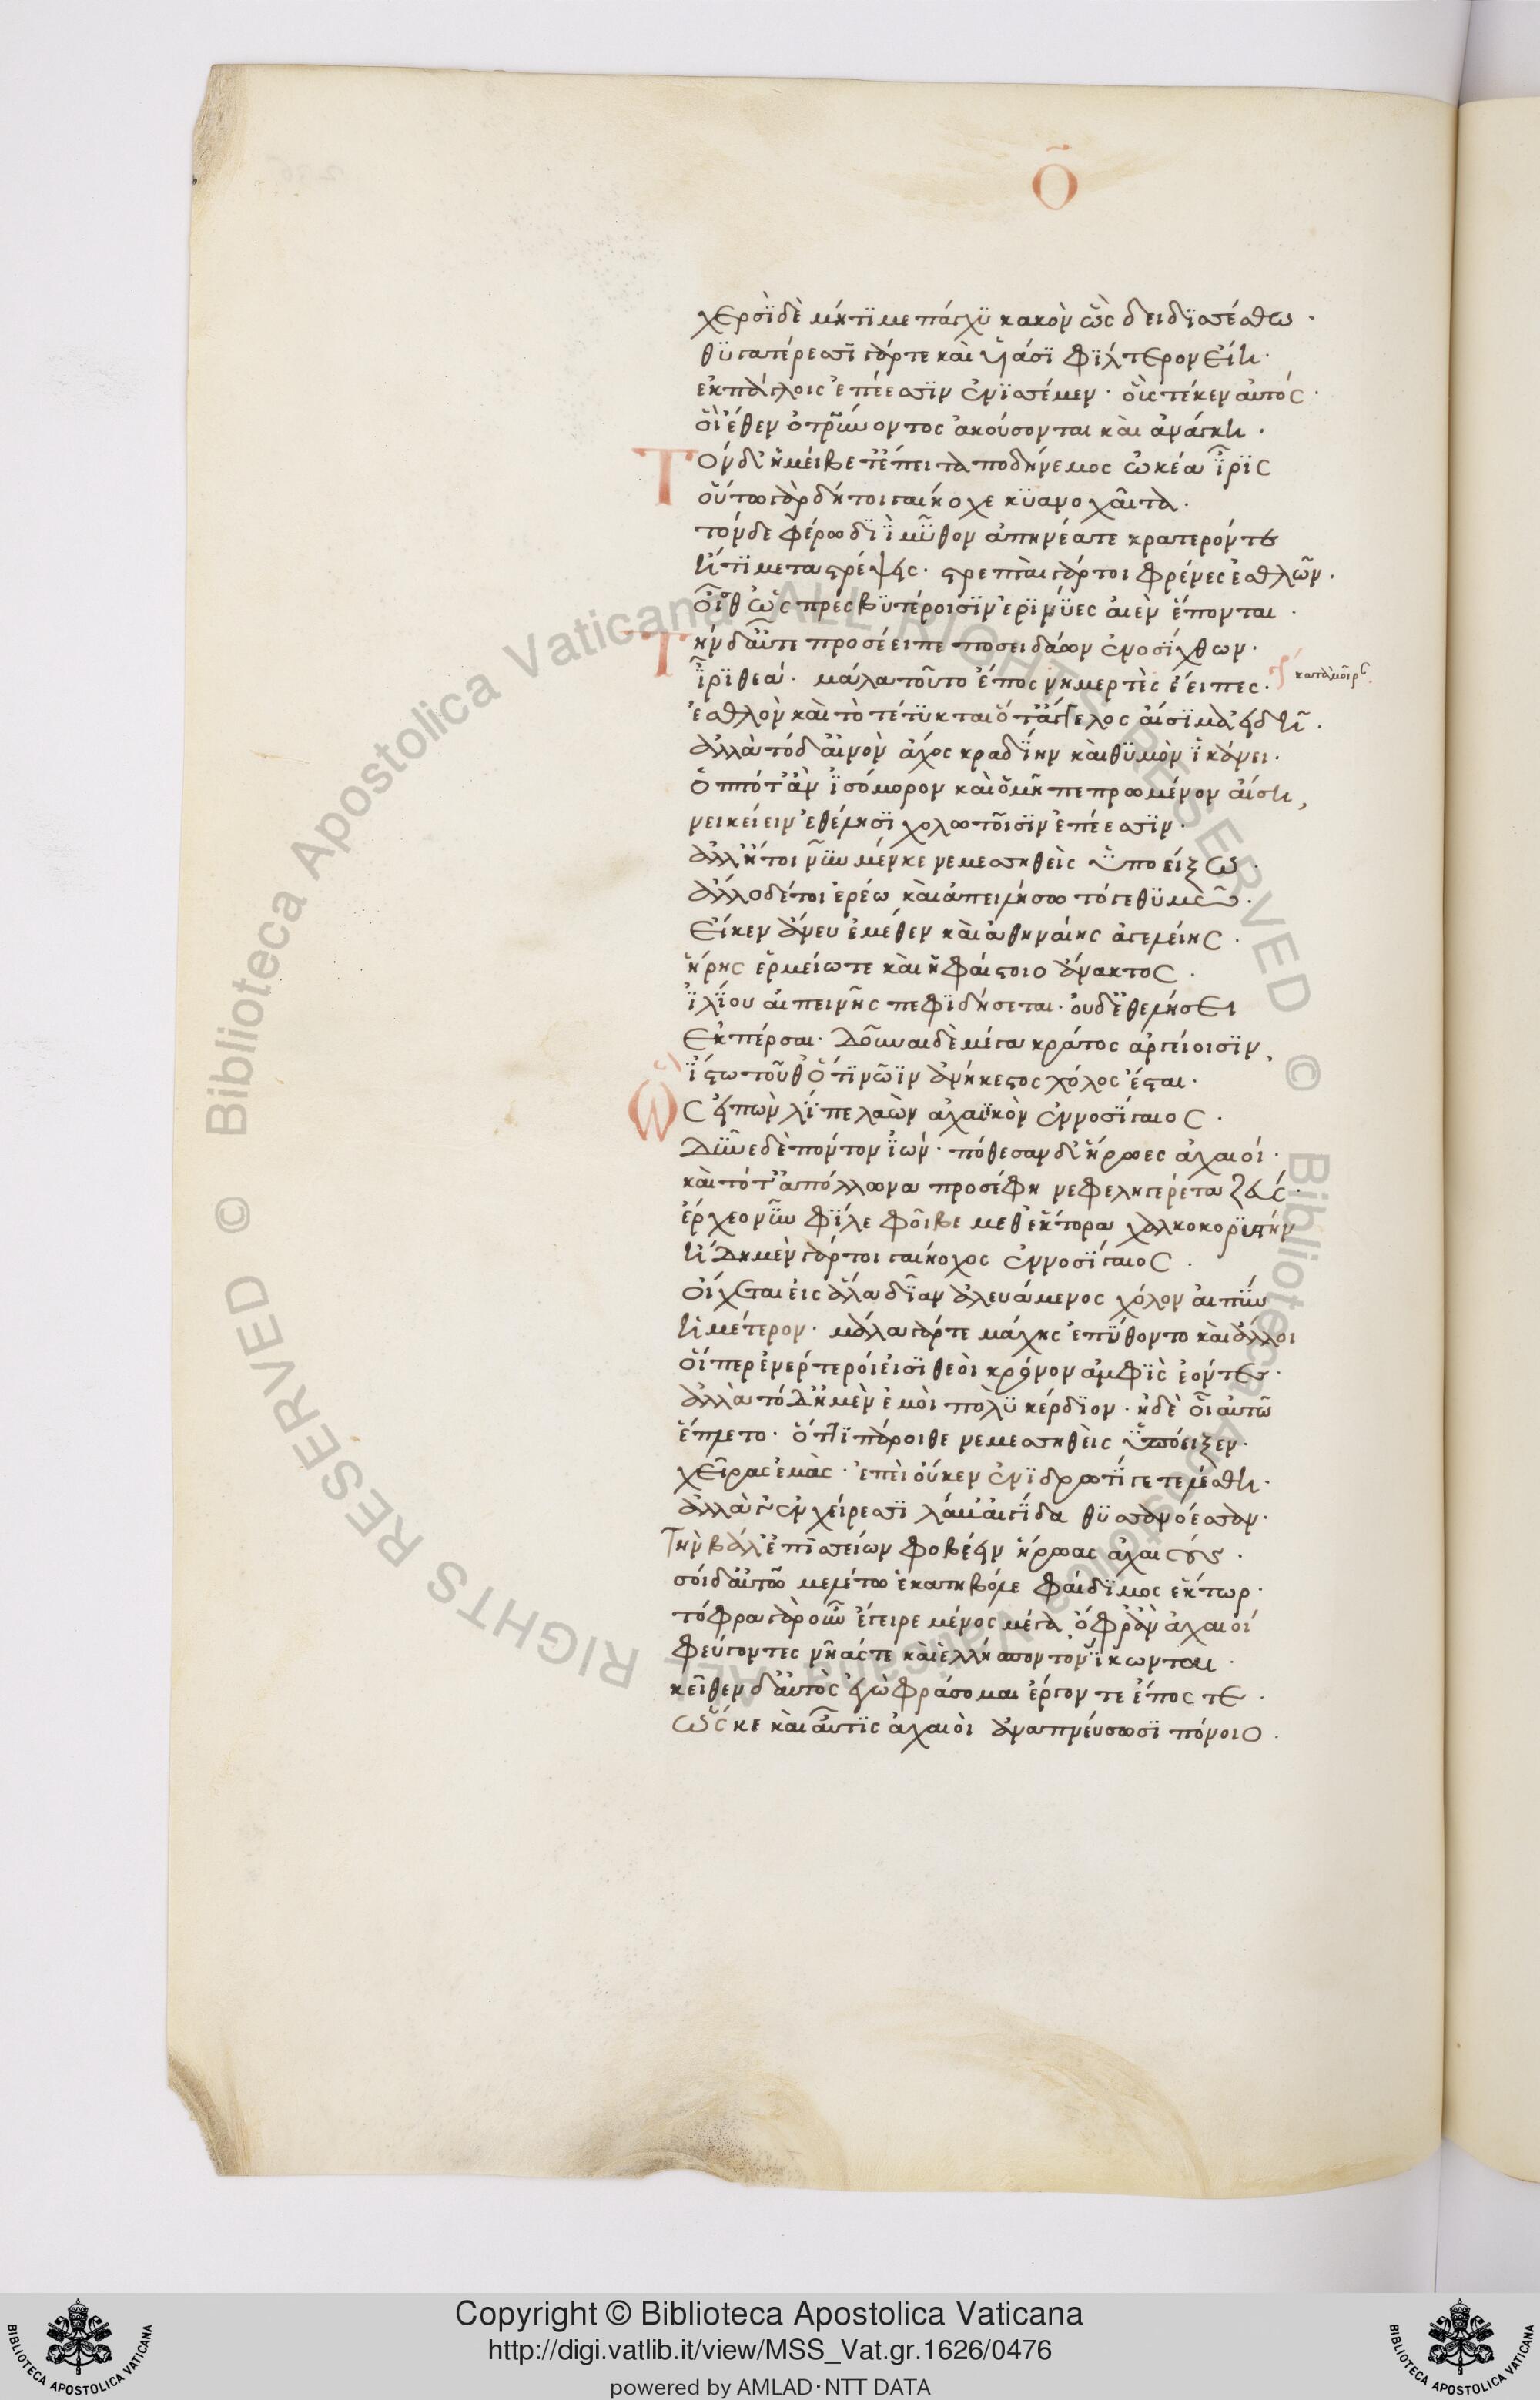 Ὁ
χερσὶ δὲ μήτι με πάγχυ κακὸν ὣς δειδισσέσθω·
θυγατέρεσσι γάρ τε καὶ υἱάσι φίλτερον εἴη·
ἐκπάγλοις ἐπέεσσιν ἐνισσέμεν· οὓς τέκεν αὐτός·
οἵ ἑθεν ὀτρύνοντος ἀκούσονται καὶ ἀνάγκη·
Τὸν δ' ἠμείβετ' ἔπειτα ποδήνεμος ὠκέα ἶρις
οὕτω γὰρ δή τοι γαιήοχε κυανοχαῖτα·
τόνδε φέρω διὶ μῦθον ἀπηνέα τε κρατερόν τε
ἦ τι μεταστρέψεις· στρεπταὶ γάρ τοι φρένες ἐσθλῶν·
οἶσθ' ὡς πρεσβυτέροισιν ἐρινύες αἰὲν ἕπονται·
Τὴν δ' αὖτε προσέειπε ποσειδάων ἐνοσίχθων·
ἶρι θεά· μάλα τοῦτο ἔπος νημερτὲς ἔειπες·
κατὰ μοῖραν
ἐσθλὸν καὶ τὸ τέτυκται ὅτ' ἄγγελος αἴσιμα εἰδῇ·
ἀλλὰ τόδ' αἰνὸν ἄχος κραδίην καὶ θυμὸν ἱκάνει·
ὁππότ' ἂν ἰσόμορον καὶ ὁμῇ πεπρωμένον αἴσῃ,
νεικείειν ἐθέλῃσι χολωτοῖσιν ἐπέεσσιν·
ἀλλ' ἤτοι νῦν μέν κε νεμεσσηθεὶς ὑποείξω·
ἄλλο δέ τοι ἐρέω καὶ ἀπειλήσω τό γε θυμῷ·
εἴ κεν ἄνευ ἐμέθεν καὶ ἀθηναίης ἀγελείης·
ἥρης ἑρμείω τε καὶ ἡφαίστοιο ἄνακτος·
ἰλίου αἰπεινῆς πεφιδήσεται· οὐδ' ἐθελήσει
ἐκπέρσαι· δοῦναι δὲ μέγα κράτος ἀργείοισιν,
ἴστω τοῦθ' ὅτι νῶϊν ἀνήκεστος χόλος ἔσται·
Ὣς εἰπὼν λίπε λαὸν ἀχαιϊκὸν ἐννοσίγαιος·
δῦνε δὲ πόντον ἰών· πόθεσαν δ' ἥρωες ἀχαιοί·
καὶ τότ' ἀπόλλωνα προσέφη νεφεληγερέτα ζεύς·
ἔρχεο νῦν φίλε φοῖβε μεθ' ἕκτορα χαλκοκορυστήν
ἤδη μὲν γάρ τοι γαιήοχος ἐννοσίγαιος·
οἴχεται εἰς ἅλα δῖαν ἀλευάμενος χόλον αἰπύν
ἡμέτερον· μάλα γάρ τε μάχης ἐπύθοντο καὶ ἄλλοι
οἵπερ ἐνέρτεροί εἰσι θεοὶ κρόνον ἀμφὶς ἐόντες·
ἀλλὰ τόδ' ἠμὲν ἐμοὶ πολὺ κέρδιον· ἠδὲ οἷ αὐτῶ
ἔπλετο· ὅττι πάροιθε νεμεσσηθεὶς ὑπόειξεν·
χεῖρας ἐμὰς· ἐπεὶ οὔ κεν ἀνιδρωτί γε τελέσθη·
ἀλλὰ σύ γ' ἐν χείρεσσι λάβ' αἰγίδα θυσσανόεσσαν·
τὴν μάλ' ἐπισσείων φοβέειν ἥρωας ἀχαιούς·
σοὶ δ' αὐτῶ μελέτω ἑκατηβόλε φαίδιμος ἕκτωρ·
τόφρα γὰρ οὖν ἔγειρε μένος μέγα ὄφρ' ἂν ἀχαιοί
φεύγοντες νῆάς τε καὶ ἑλλήσποντον ἵκωνται·
κεῖθεν δ' αὐτὸς ἐγὼ φράσομαι ἔργον τε ἔπος τε·
ὥς κε καὶ αὖτις ἀχαιοὶ ἀναπνεύσωσι πόνοιο·
Copyright © Biblioteca Apostolica Vaticana
http://digi.vatlib.it/view/MSS_Vat.gr.1626/0476
powered by AMLAD·NTT DATA
BIBLIOTECA APOSTOLICA VATICANA
BIBLIOTECA APOSTOLICA VATICANA
© Biblioteca Apostolica Vaticana ALL RIGHTS RESERVED
© Biblioteca Apostolica Vaticana ALL RIGHTS RESERVED